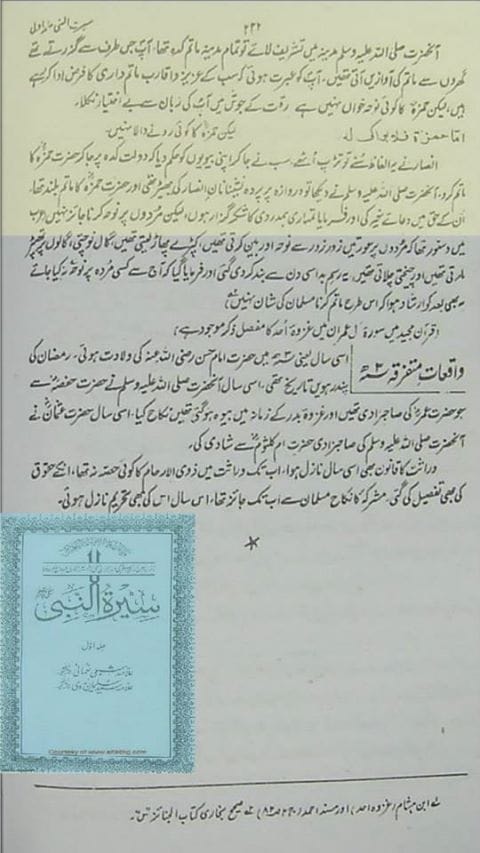 ۲۴۲
سیرت النبی جلد اول
آنحضرت صلی اللہ علیہ وسلم مدینہ میں تشریف لائے تو تمام مدینہ ماتم کدہ تھا، آپ جس طرف سے گزرتے تھے
گھروں سے ماتم کی آوازیں آتی تھیں۔ آپ کو عبرت ہوئی کہ سب کے عزیز و اقارب ماتم داری کا فرض ادا کر رہے
ہیں، لیکن حمزہؓ کا کوئی نوحہ خواں نہیں ہے رقت کے جوش میں آپ کی زبان سے بے اختیار نکلا۔
اما حمزة فلا بواكی له لیکن حمزہؓ کا کوئی رونے والا نہیں۔
انصار نے یہ الفاظ سنے تو تڑپ اٹھے، سب نے جا کر اپنی بیویوں کو حکم دیا کہ دولت کدہ پر جا کر حضرت حمزہؓ کا
ماتم کرو، آنحضرت صلی اللہ علیہ وسلم نے دیکھا تو دروازہ پر پردہ نشینان انصار کی بھیڑ تھی اور حضرت حمزہؓ کا ماتم بلند تھا،
ان کے حق میں دعائے خیر کی اور فرمایا تمہاری ہمدردی کا شکر گزار ہوں، لیکن مردوں پر نوحہ کرنا جائز نہیں، (عرب
میں دستور تھا کہ مردوں پر عورتیں زور زور سے نوحہ اور بین کرتی تھیں، کپڑے پھاڑ لیتی تھیں، گال نوچتی، گالوں پر تھپڑ
مارتی تھیں اور چیختی چلاتی تھیں، یہ رسم بد اسی دن سے بند کر دی گئی اور فرمایا گیا کہ آج سے کسی مردہ پر نوحہ نہ کیا جائے
یہ بھی بعد کو ارشاد ہوا کہ اس طرح ماتم کرنا مسلمان کی شان نہیں
(قرآن مجید میں سورۂ آل عمران میں غزوۂ احد کا مفصل ذکر موجود ہے)
واقعات متفرقہ ۳ھ
اسی سال یعنی ۳ھ میں حضرت امام حسن رضی اللہ عنہ کی ولادت ہوئی۔ رمضان کی
پندرھویں تاریخ تھی۔ اسی سال آنحضرت صلی اللہ علیہ وسلم نے حضرت حفصہؓ سے
جو حضرت عمرؓ کی صاحبزادی تھیں اور غزوۂ بدر کے زمانہ میں بیوہ ہو گئی تھیں نکاح کیا، اسی سال حضرت عثمانؓ نے
آنحضرت صلی اللہ علیہ وسلم کی صاحبزادی حضرت ام کلثومؓ سے شادی کی۔
وراثت کا قانون بھی اسی سال نازل ہوا، اب تک وراثت میں ذوی الارحام کا کوئی حصہ نہ تھا، انکے حقوق
کی بھی تفصیل کی گئی، مشرکہ کا نکاح مسلمان سے اب تک جائز تھا، اس سال اس کی بھی تحریم نازل ہوئی۔
*
سیرۃ النبی
جلد اول
علامہ شبلی نعمانی
علامہ سید سلیمان ندوی
Courtesy of www
ابن ہشام (غزوہ احد) اور مسند احمد صحیح بخاری کتاب الجنائز